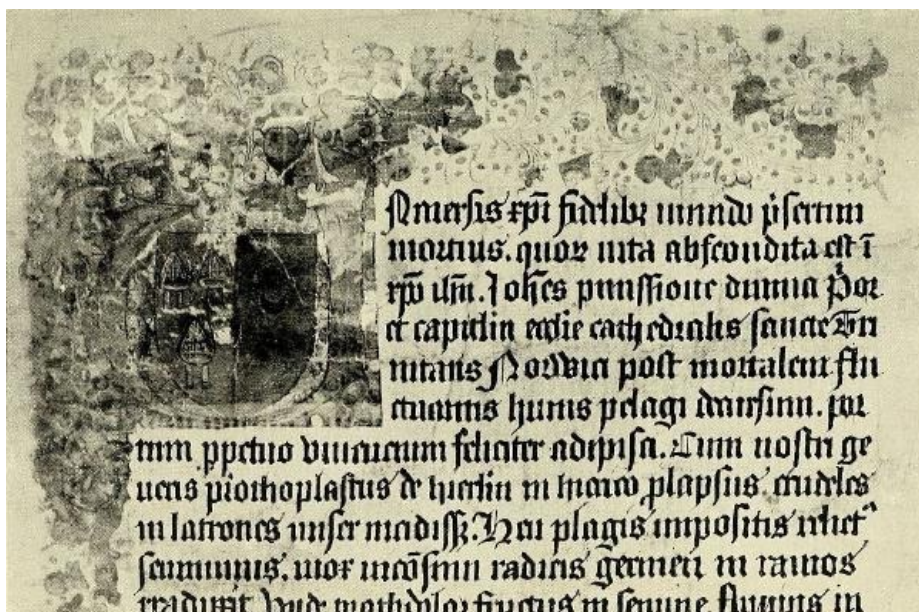 Niuersis xp̄i fidelibꝫ mundo p̄sertim
mortuis. quoꝝ uita abscondita est ī
xp̄o ih̄u. Joh̄es pmissione diuina P̄or
et capitlm ecclie cathedralis sancte Tri
nitatis Norwici post mortalem flu
ctuantis huius pelagi decursum. por
tum ppetuo viuencium feliciter adipisci. Cum nostri ge
neris prothoplastus de hierlm in hierico ꝓlapsus crudeles
in latrones miser incidissꝫ. Heu plagis impositis
seminiuus. mox radicis germen in ramos
traduxit. Unde fructus in semine